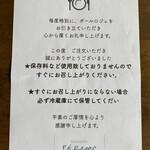 毎度格別に、ポールロジェを
お引き立ていただき
心から深くお礼申し上げます。
この度 ご注文いただき
誠にありがとうございました
★保存料など使用致しておりませんので
すぐにお召し上がりください。
★すぐにお召し上がりにならない場合
必ず冷蔵庫にて保管してくだい
平素のご厚情を心より
感謝申し上げます。